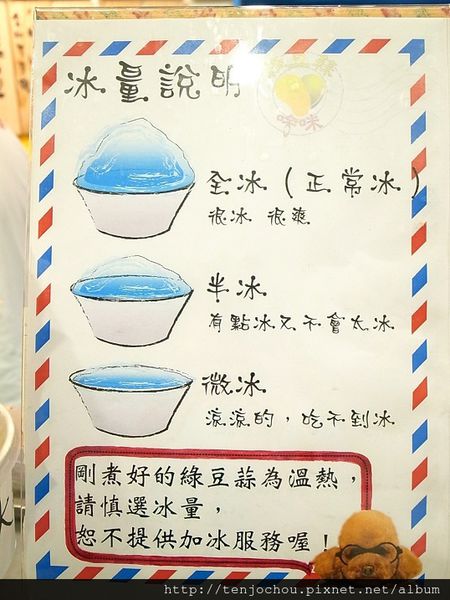 冰量說明
綠豆蒜
啥咪
全冰（正常冰）
很冰 很爽
半冰
有點冰又不會太冰
微冰
涼涼的，吃不到冰
剛煮好的綠豆蒜為溫熱，
請慎選冰量，
恕不提供加冰服務喔！
http://tenjochou.pixnet.net/album